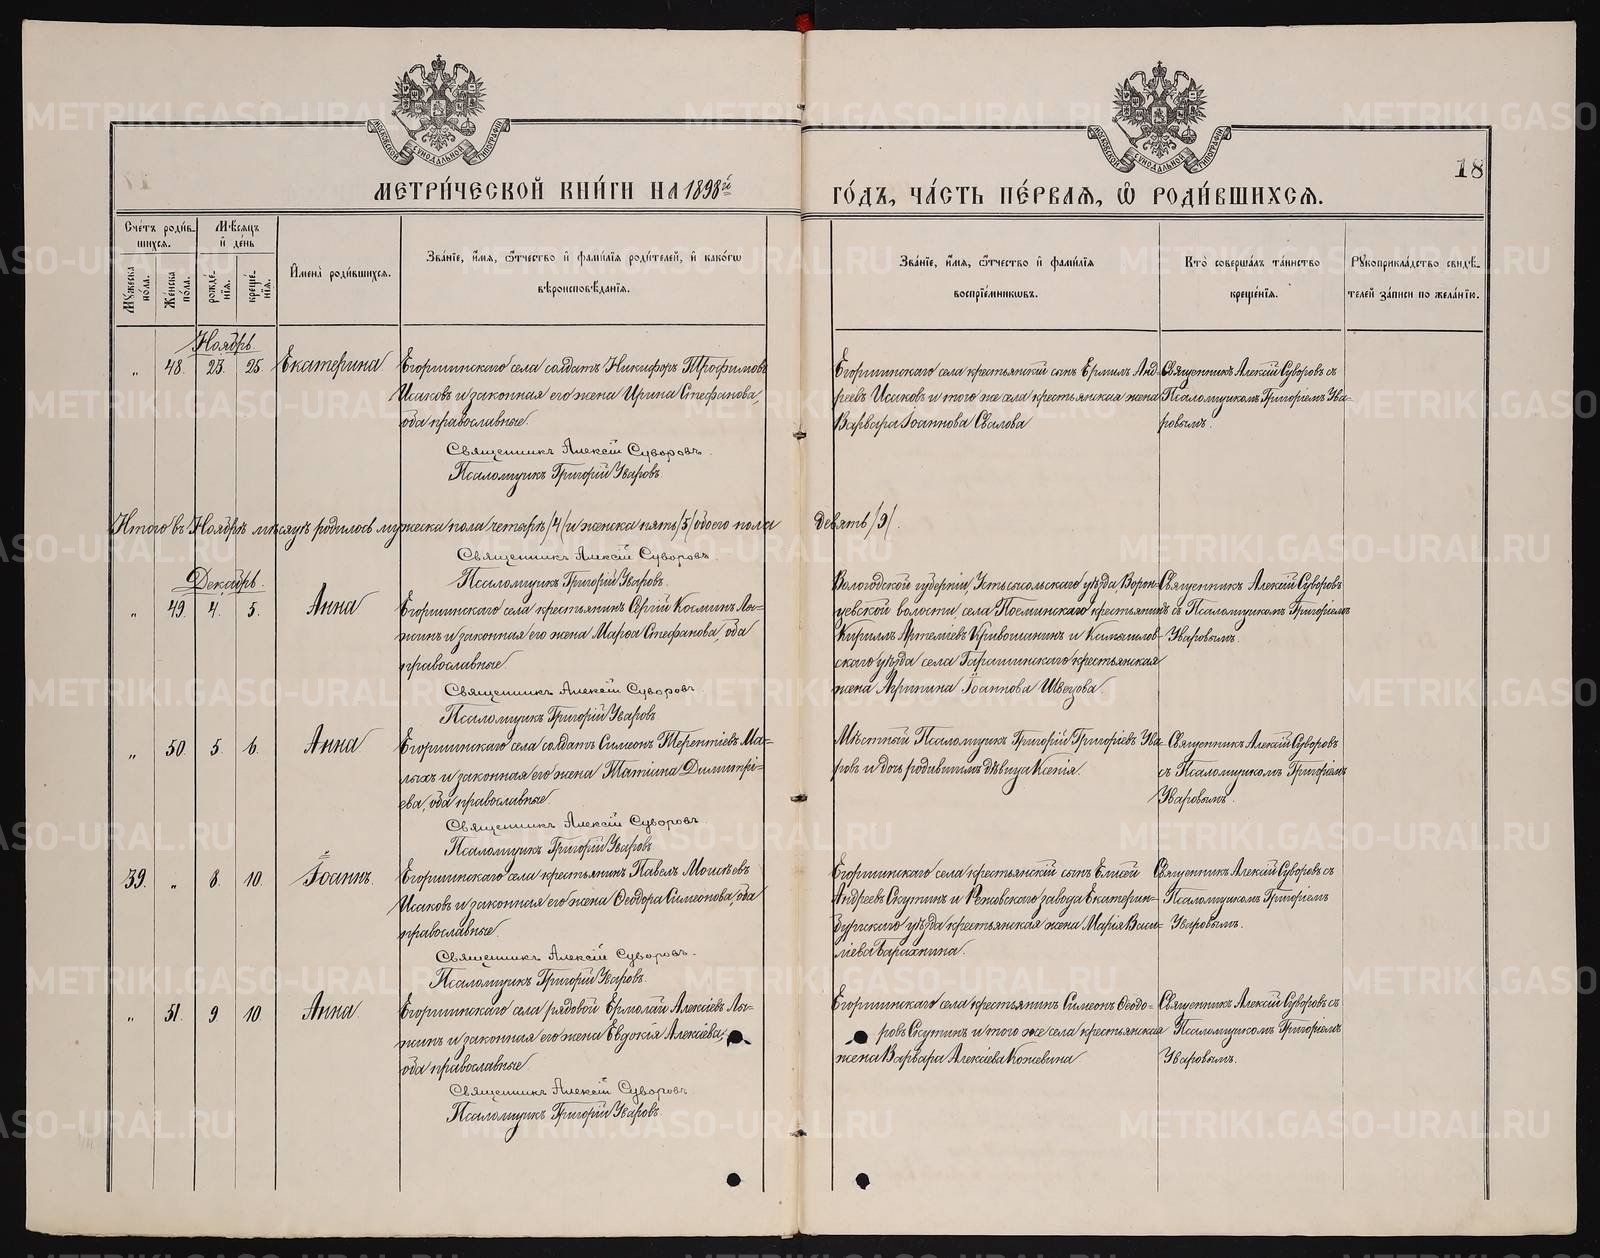 МЕТРИ́ЧЕСКОЙ КНИ́ГИ НА 1898й
ГО́ДЪ, ЧА́СТЬ ПЕ́РВАѦ, Ѡ҆ РОДИ́ВШИХСѦ.
18
МОСКОВСКОЙ СУНОДАЛЬНОЙ ТИПОГРАФІИ
МОСКОВСКОЙ СУНОДАЛЬНОЙ ТИПОГРАФІИ
Сче́тъ роди́в-
шихсѧ.
Мѣ́сѧцъ
и҆ де́нь
Мꙋ́жеска
по́ла.
Же́нска
по́ла.
рожде́-
нїѧ.
креще́-
нїѧ.
И҆мена̀ роди́вшихсѧ.
Зва́нїе, и҆́мѧ, ѻ҆́тчество и҆ фамі́лїѧ роди́телей, и҆ како́гѡ
вѣроисповѣ́данїѧ.
Зва́нїе, и҆́мѧ, ѻ҆́тчество и҆ фамі́лїѧ
воспрїе́мникѡвъ.
Кто̀ соверша́лъ та́инство
креще́нїѧ.
Рꙋкоприкла́дство свидѣ́-
телей за́писи по жела́нїю.
Ноябрь.
„ 48. 23. 25. Екатерина
Егоршинскаго села солдатъ Никифоръ Трофимовъ
Исаковъ и законная его жена Ирина Стефанова,
оба православные.
Священникъ Алексій Суворовъ.
Псаломщикъ Григорій Уваровъ
Егоршинскаго села крестьянскій сынъ Ермилъ Анд-
реевъ Исаковъ и того же села крестьянская жена
Варвара Іоаннова Свалова
Священникъ Алексій Суворовъ съ
Псаломщикомъ Григоріемъ Ува-
ровымъ.
Итого въ Ноябрѣ мѣсяцѣ родилось мужеска пола четыре /4/ и женска пять /5/ обоего пола девять /9/.
Священникъ Алексій Суворовъ.
Псаломщикъ Григорій Уваровъ.
Декабрь.
„ 49. 4. 5. Анна
Егоршинскаго села крестьянинъ Сергій Косминъ Лы-
жинъ и законная его жена Марѳа Стефанова, оба
православные.
Священникъ Алексій Суворовъ.
Псаломщикъ Григорій Уваровъ
Вологодской губерніи, Устьсысольскаго уѣзда,
волости села крестьянинъ
Кириллъ Артеміевъ Кривошанинъ и Камышлов-
скаго уѣзда села крестьянская
жена Агрипина Іоаннова Швецова.
Священникъ Алексій Суворовъ
съ Псаломщикомъ Григоріемъ
Уваровымъ.
„ 50. 5. 6. Анна
Егоршинскаго села солдатъ Симеонъ Терентіевъ Ма-
лыхъ и законная его жена Татіана Димитрі-
ева, оба православные.
Священникъ Алексій Суворовъ.
Псаломщикъ Григорій Уваровъ
Мѣстный Псаломщикъ Григорій Григоріевъ Ува-
ровъ и дочь родившимъ дѣвица Ксенія.
Священникъ Алексій Суворовъ
съ Псаломщикомъ Григоріемъ
Уваровымъ.
39. „ 8. 10. Іоаннъ.
Егоршинскаго села крестьянинъ Павелъ Моисѣевъ
Исаковъ и законная его жена Ѳеодора Симеонова, оба
православные.
Священникъ Алексій Суворовъ.
Псаломщикъ Григорій Уваровъ.
Егоршинскаго села крестьянскій сынъ Елисей
Андреевъ Скутинъ и Режовскаго завода Екатерин-
бургскаго уѣзда крестьянская жена Марія Васи-
ліева
Священникъ Алексій Суворовъ съ
Псаломщикомъ Григоріемъ
Уваровымъ.
„ 51. 9 10 Анна
Егоршинскаго села рядовой Ермолай Алексіевъ Лы-
жинъ и законная его жена Евдокія Алексіева,
оба православные
Священникъ Алексій Суворовъ
Псаломщикъ Григорій Уваровъ.
Егоршинскаго села крестьянинъ Симеонъ Ѳеодо-
ровъ Скутинъ и того же села крестьянская
жена Варвара Алексіева Кожевина
Священникъ Алексій Суворовъ съ
Псаломщикомъ Григоріемъ
Уваровымъ.
METRIKI.GASO-URAL.RU